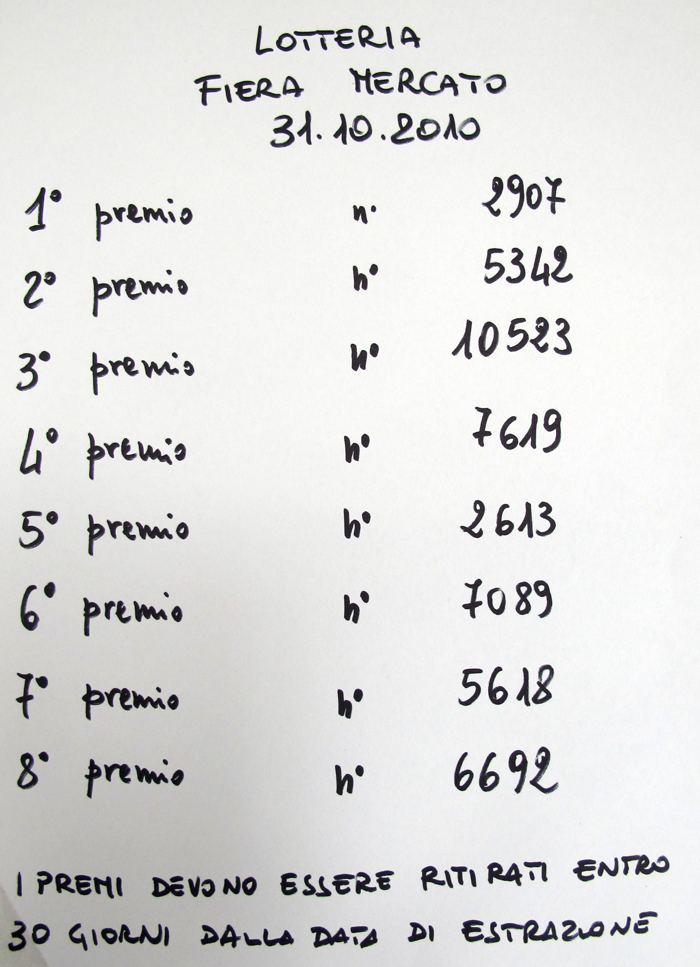 LOTTERIA
FIERA MERCATO
31.10.2010
1° premio n° 2907
2° premio n° 5342
3° premio n° 10523
4° premio n° 7619
5° premio n° 2613
6° premio n° 7089
7° premio n° 5618
8° premio n° 6692
I PREMI DEVONO ESSERE RITIRATI ENTRO
30 GIORNI DALLA DATA DI ESTRAZIONE